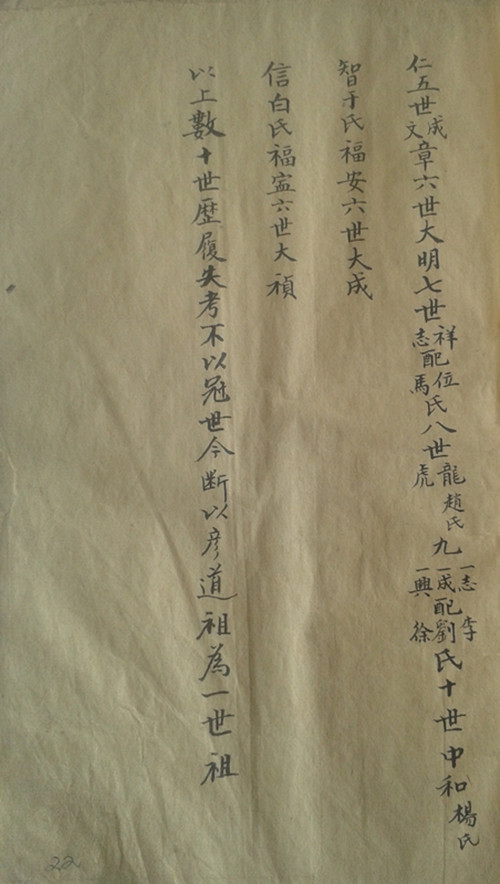 仁五世成文章六世大明七世祥志配位馬氏八世龍虎趙氏九一志一成一興配李劉徐氏十世中和楊氏
智于氏福安六世大成
信白氏福寍六世大禎
以上數十世歷履失考不以冠世今斷以彦道祖為一世祖
22